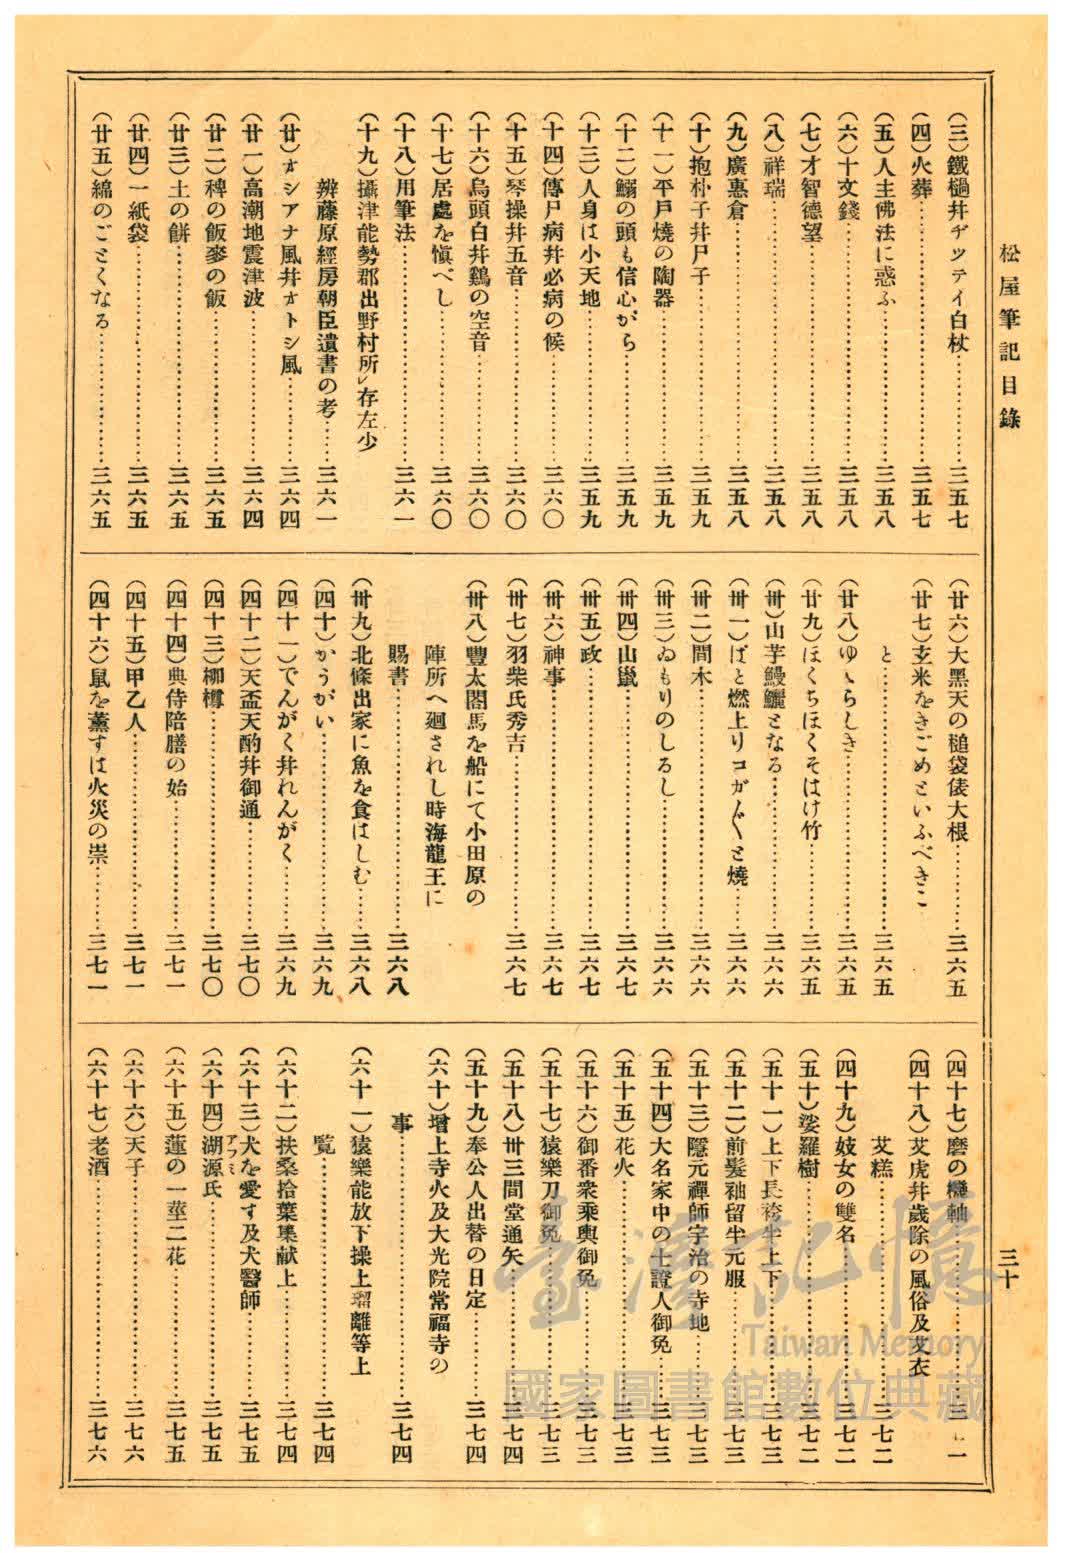 松屋筆記目錄
三十
(三)鐵檛幷ヂツテイ白杖…………三五七
(四)火葬…………三五七
(五)人主佛法に惑ふ…………三五八
(六)十文錢…………三五八
(七)才智德望…………三五八
(八)祥瑞…………三五八
(九)廣惠倉…………三五八
(十)抱朴子幷尸子…………三五九
(十一)平戶燒の陶器…………三五九
(十二)鰯の頭も信心がら…………三五九
(十三)人身は小天地…………三五九
(十四)傳尸病幷必病の候…………三六〇
(十五)琴操幷五音…………三六〇
(十六)烏頭白幷鷄の空音…………三六〇
(十七)居處を愼べし…………三六〇
(十八)用筆法…………三六一
(十九)攝津能勢郡出野村所レ存左少
辨藤原經房朝臣遺書の考…………三六一
(廿)オシアナ風幷オトシ風…………三六四
(廿一)高潮地震津波…………三六四
(廿二)稗の飯麥の飯…………三六五
(廿三)土の餅…………三六五
(廿四)一紙袋…………三六五
(廿五)綿のごとくなる…………三六五
(廿六)大黑天の槌袋俵大根…………三六五
(廿七)玄米をきごめといふべきこ
と…………三六五
(廿八)ゆゝらしき…………三六五
(廿九)ほくちほくそはけ竹…………三六五
(卅)山芋鰻鱺となる…………三六六
(卅一)ばと燃上りコガ〴〵と燒…………三六六
(卅二)間木…………三六六
(卅三)ゐもりのしるし…………三六六
(卅四)山嶽…………三六七
(卅五)政…………三六七
(卅六)神事…………三六七
(卅七)羽柴氏秀吉…………三六七
(卅八)豐太閤馬を船にて小田原の
陣所へ廻されし時海龍王に
賜書…………三六八
(卅九)北條出家に魚を食はしむ…………三六八
(四十)かうがい…………三六九
(四十一)でんがく幷れんがく…………三六九
(四十二)天盃天酌幷御通…………三七〇
(四十三)柳樽…………三七〇
(四十四)典侍陪膳の始…………三七一
(四十五)甲乙人…………三七一
(四十六)鼠を薰すは火災の祟…………三七一
(四十七)磨の機軸…………三七一
(四十八)艾虎幷歲除の風俗及艾衣
艾糕…………三七二
(四十九)妓女の雙名…………三七二
(五十)娑羅樹…………三七二
(五十一)上下長袴半上下…………三七三
(五十二)前髮袖留半元服…………三七三
(五十三)隱元禪師宇治の寺地…………三七三
(五十四)大名家中の士證人御免…………三七三
(五十五)花火…………三七三
(五十六)御番衆乘輿御免…………三七三
(五十七)猿樂刀御免…………三七三
(五十八)卅三間堂通矢…………三七四
(五十九)奉公人出替の日定…………三七四
(六十)增上寺火及大光院常福寺の
事…………三七四
(六十一)猿樂能放下操上瑠離等上
覧…………三七四
(六十二)扶桑拾葉集献上…………三七四
(六十三)犬を愛す及犬醫師…………三七五
(六十四)湖源氏…………三七五
アフミ
(六十五)蓮の一莖二花…………三七五
(六十六)天子…………三七六
(六十七)老酒…………三七六
臺灣記憶
Taiwan Memory
國家圖書館數位典藏